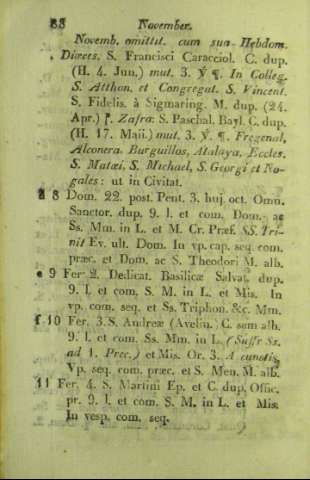 88 November.
Novemb. omittit. cum sua Hebdom.
Dioeces. S. Francisci Caracciol. C. dup.
(H. 4. Jun.) mut. 3. ℣ ¶. In Colleg.
S. Atthon. et Congregat. S. Vincent.
S. Fidelis. à Sigmaring. M. dup. (24.
Apr.) Zafra: S. Paschal. Bayl. C. dup.
(H. 17. Maii.) mut. 3. ℣. ¶. Fregenal,
Alconera. Burguillos, Atalaya, Eccles.
S. Matæi, S. Michael, S. Georgi et No-
gales: ut in Civitat.
d 8 Dom. 22. post. Pent. 3. huj. oct. Omn.
Sanctor. dup. 9. l. et com. Dom. ac
Ss. Mm. in L. et M. Cr. Præf. SS. Tri-
nit Ev. ult. Dom. In vp. cap. seq. com.
præc. et Dom. ac S. Theodori M. alb.
e 9 Fer 2. Dedicat. Basilicæ Salvat. dup.
9. l. et com. S. M. in L. et Mis. In
vp. com. seq. et Ss. Triphon. &c. Mm.
f 10 Fer. 3. S. Andreæ (Avelin.) C. sem alb.
9. l. et com. Ss. Mm. in L. (Suffr Ss.
ad 1. Prec.) et Mis. Or. 3. A cunctis,
Vp. seq. com. præc. et S. Men. M. alb.
11 Fer. 4. S. Martini Ep. et C. dup. Offic.
pr. 9. l. et com. S. M. in L. et Mis.
In vesp. com. seq.